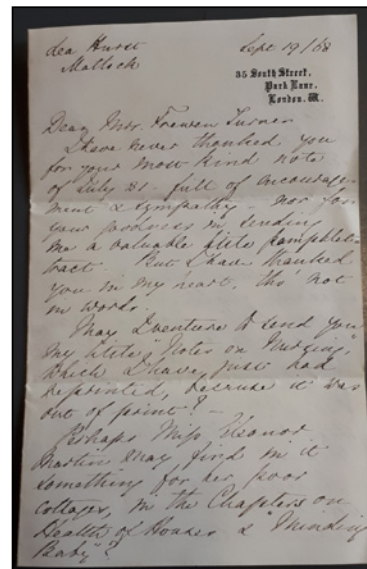 Lea Hurst
Matlock
Sept 19/68
35 South Street,
Park Lane,
London. W.
Dear Mrs. Frewen Turner
I have never thanked you
for your most kind note
of July 31. full of encourage-
ment & sympathy - nor for
your goodness in sending
me a valuable little pamphlet
tract. But I have thanked
you in my heart, tho' not
in words.
May I venture to send you
my little "Notes on Nursing,"
which I have just had
reprinted, because it was
out of print? -
Perhaps Miss Eleanor
Martin may find in it
something for her poor
cottages, in the Chapters on
Health of Houses & "Minding
Baby"?